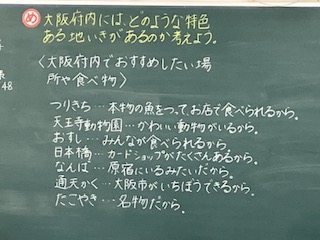 め 大阪府内には、どのような特色
ある地いきがあるのか考えよう。
〈大阪府内でおすすめしたい場
所や食べ物〉
つりきち…本物の魚をつってお店で食べられるから。
天王寺動物園…かわいい動物がいるから。
おすし…みんなが食べられるから。
日本橋…カードショップがたくさんあるから。
なんば…原宿にいるみたいだから。
通天かく…大阪市がいちぼうできるから。
たこやき…名物だから。
48